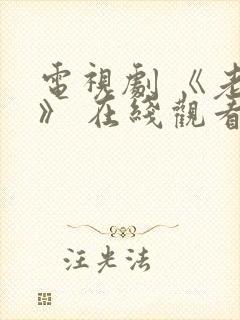 電視劇《老
》在綫觀看
汪光法